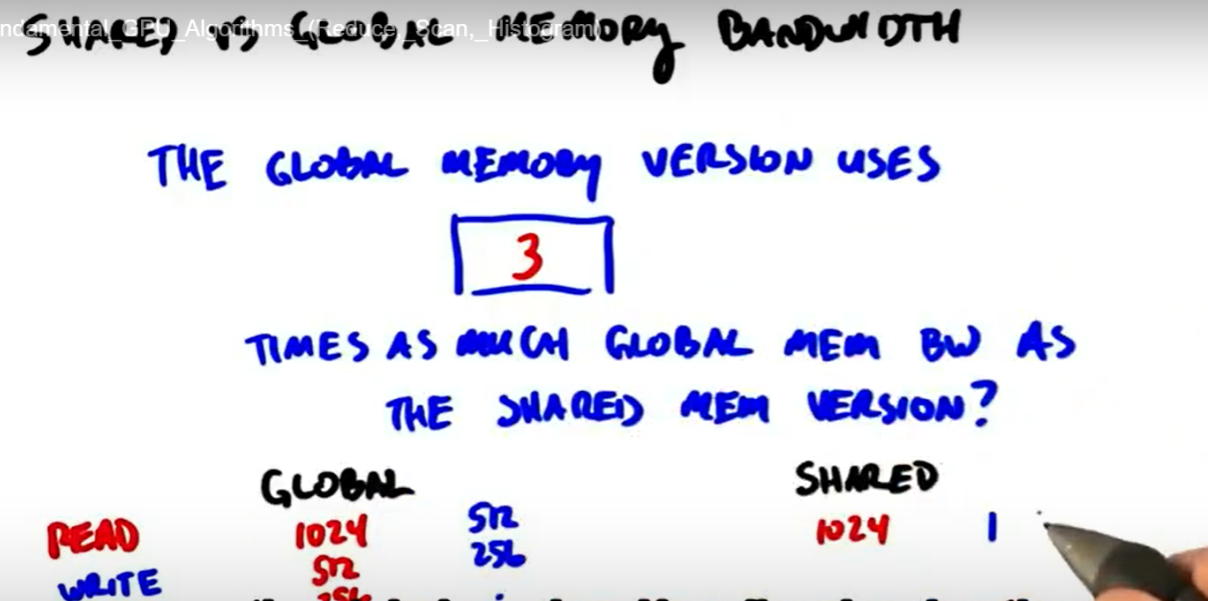 ndamental_GPU_Algorithms_(Reduce,_Scan,_Histogram)
SHARED VS GLOBAL MEMORY BANDWIDTH
THE GLOBAL MEMORY VERSION USES
3
TIMES AS MUCH GLOBAL MEM BW AS
THE SHARED MEM VERSION?
GLOBAL SHARED
READ 1024 512 1024 1
WRITE 512 256
256